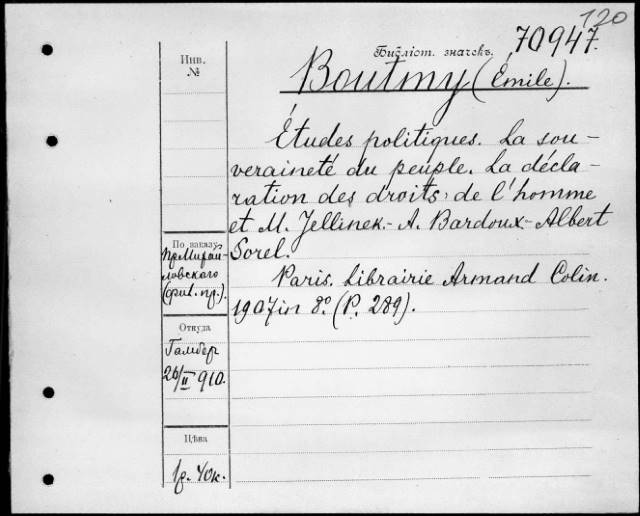 120
Библіот. значекъ.
70947.
Инв.
№
Boutmy (Émile).
Études politiques. La sou-
veraineté du peuple. La décla-
ration des droits de l'homme
et M. Jellinek.- A. Bardoux.- Albert
Sorel.
Paris. Librairie Armand Colin.
1907 in 8º. (P. 289).
По заказу
Откуда
26/II 910.
Цѣна
1р. 40к.